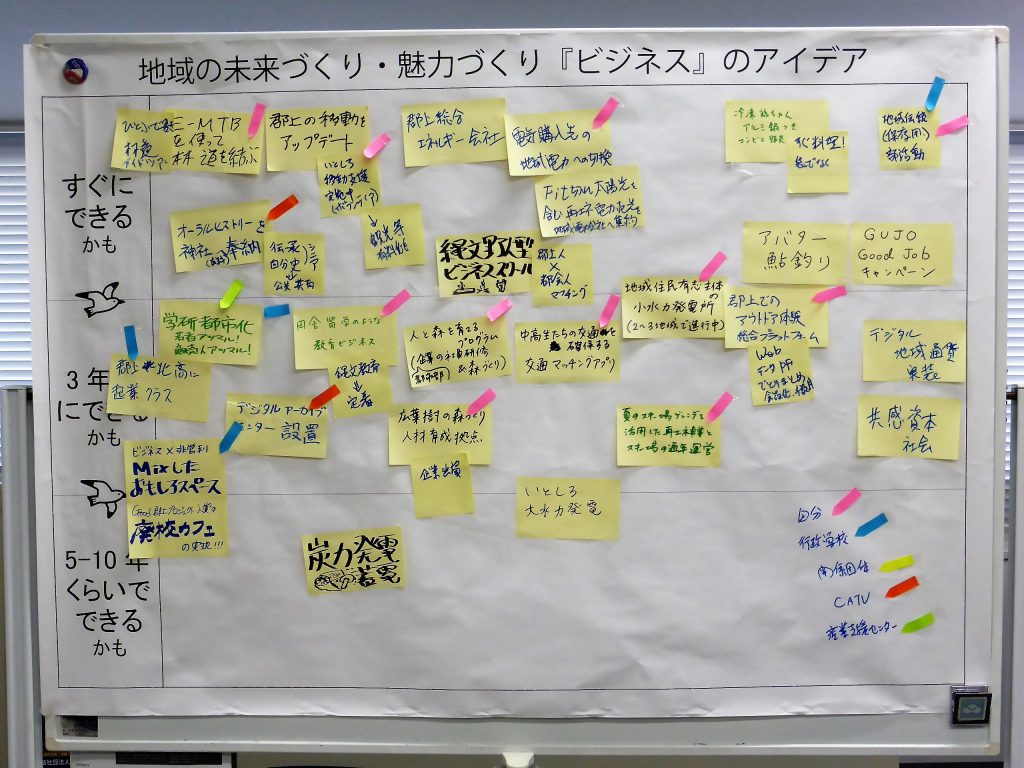 地域の未来づくり・魅力づくり『ビジネス』のアイデア
すぐに
できる
かも
E-MTB
を使って
林道を結ぶ
郡上の移動を
アップデート
いとしろ
移動支援
実施中
(ボランティア)
観光等
郡上総合
エネルギー会社
電気購入先の
地域電力への切換
Fit切れ太陽光を
含む再エネ電力売先を
アルミ鍋つき
コンビニ販売
すぐ料理!
急でなく
地域伝統
(保存用)
部活動
オーラルヒストリーを
神社(お寺)奉納
伝承
自分史
公共共有
縄文野遊型
ビジネススクール
郡上人
×
都会人
マッチング
アバター
鮎釣り
GUJO
Good Job
キャンペーン
3年
にできる
かも
学研都市化
若者アツマル!
田舎留学のような
教育ビジネス
縄文教育
↓
定着
人と森を育てる
プログラム
(企業の社員研修
&森づくり)
中高生たちの交通を
確保する
交通マッチングアプリ
地域住民有志主体
の
小水力発電所
(2〜3地域で進行中)
郡上での
アウトドア体験
総合プラットフォーム
Web
データ、PF
でとりまとめ
デジタル
地域通貨
実装
郡上・北高に
起業クラス
デジタルアーカイブ
センター設置
広葉樹の森づくり
人材育成拠点
企業出資
夏のスキー場ゲレンデを
活用した再エネ事業と
スキー場の通年運営
共感資本
社会
ビジネス×非営利
Mixした
おもしろスペース
廃校カフェ
の実現!!!
いとしろ
大水力発電
5-10年
くらいで
できる
かも
炭力発電
蓄電
自分
行政学校
関係団体
CATV
産業支援センター